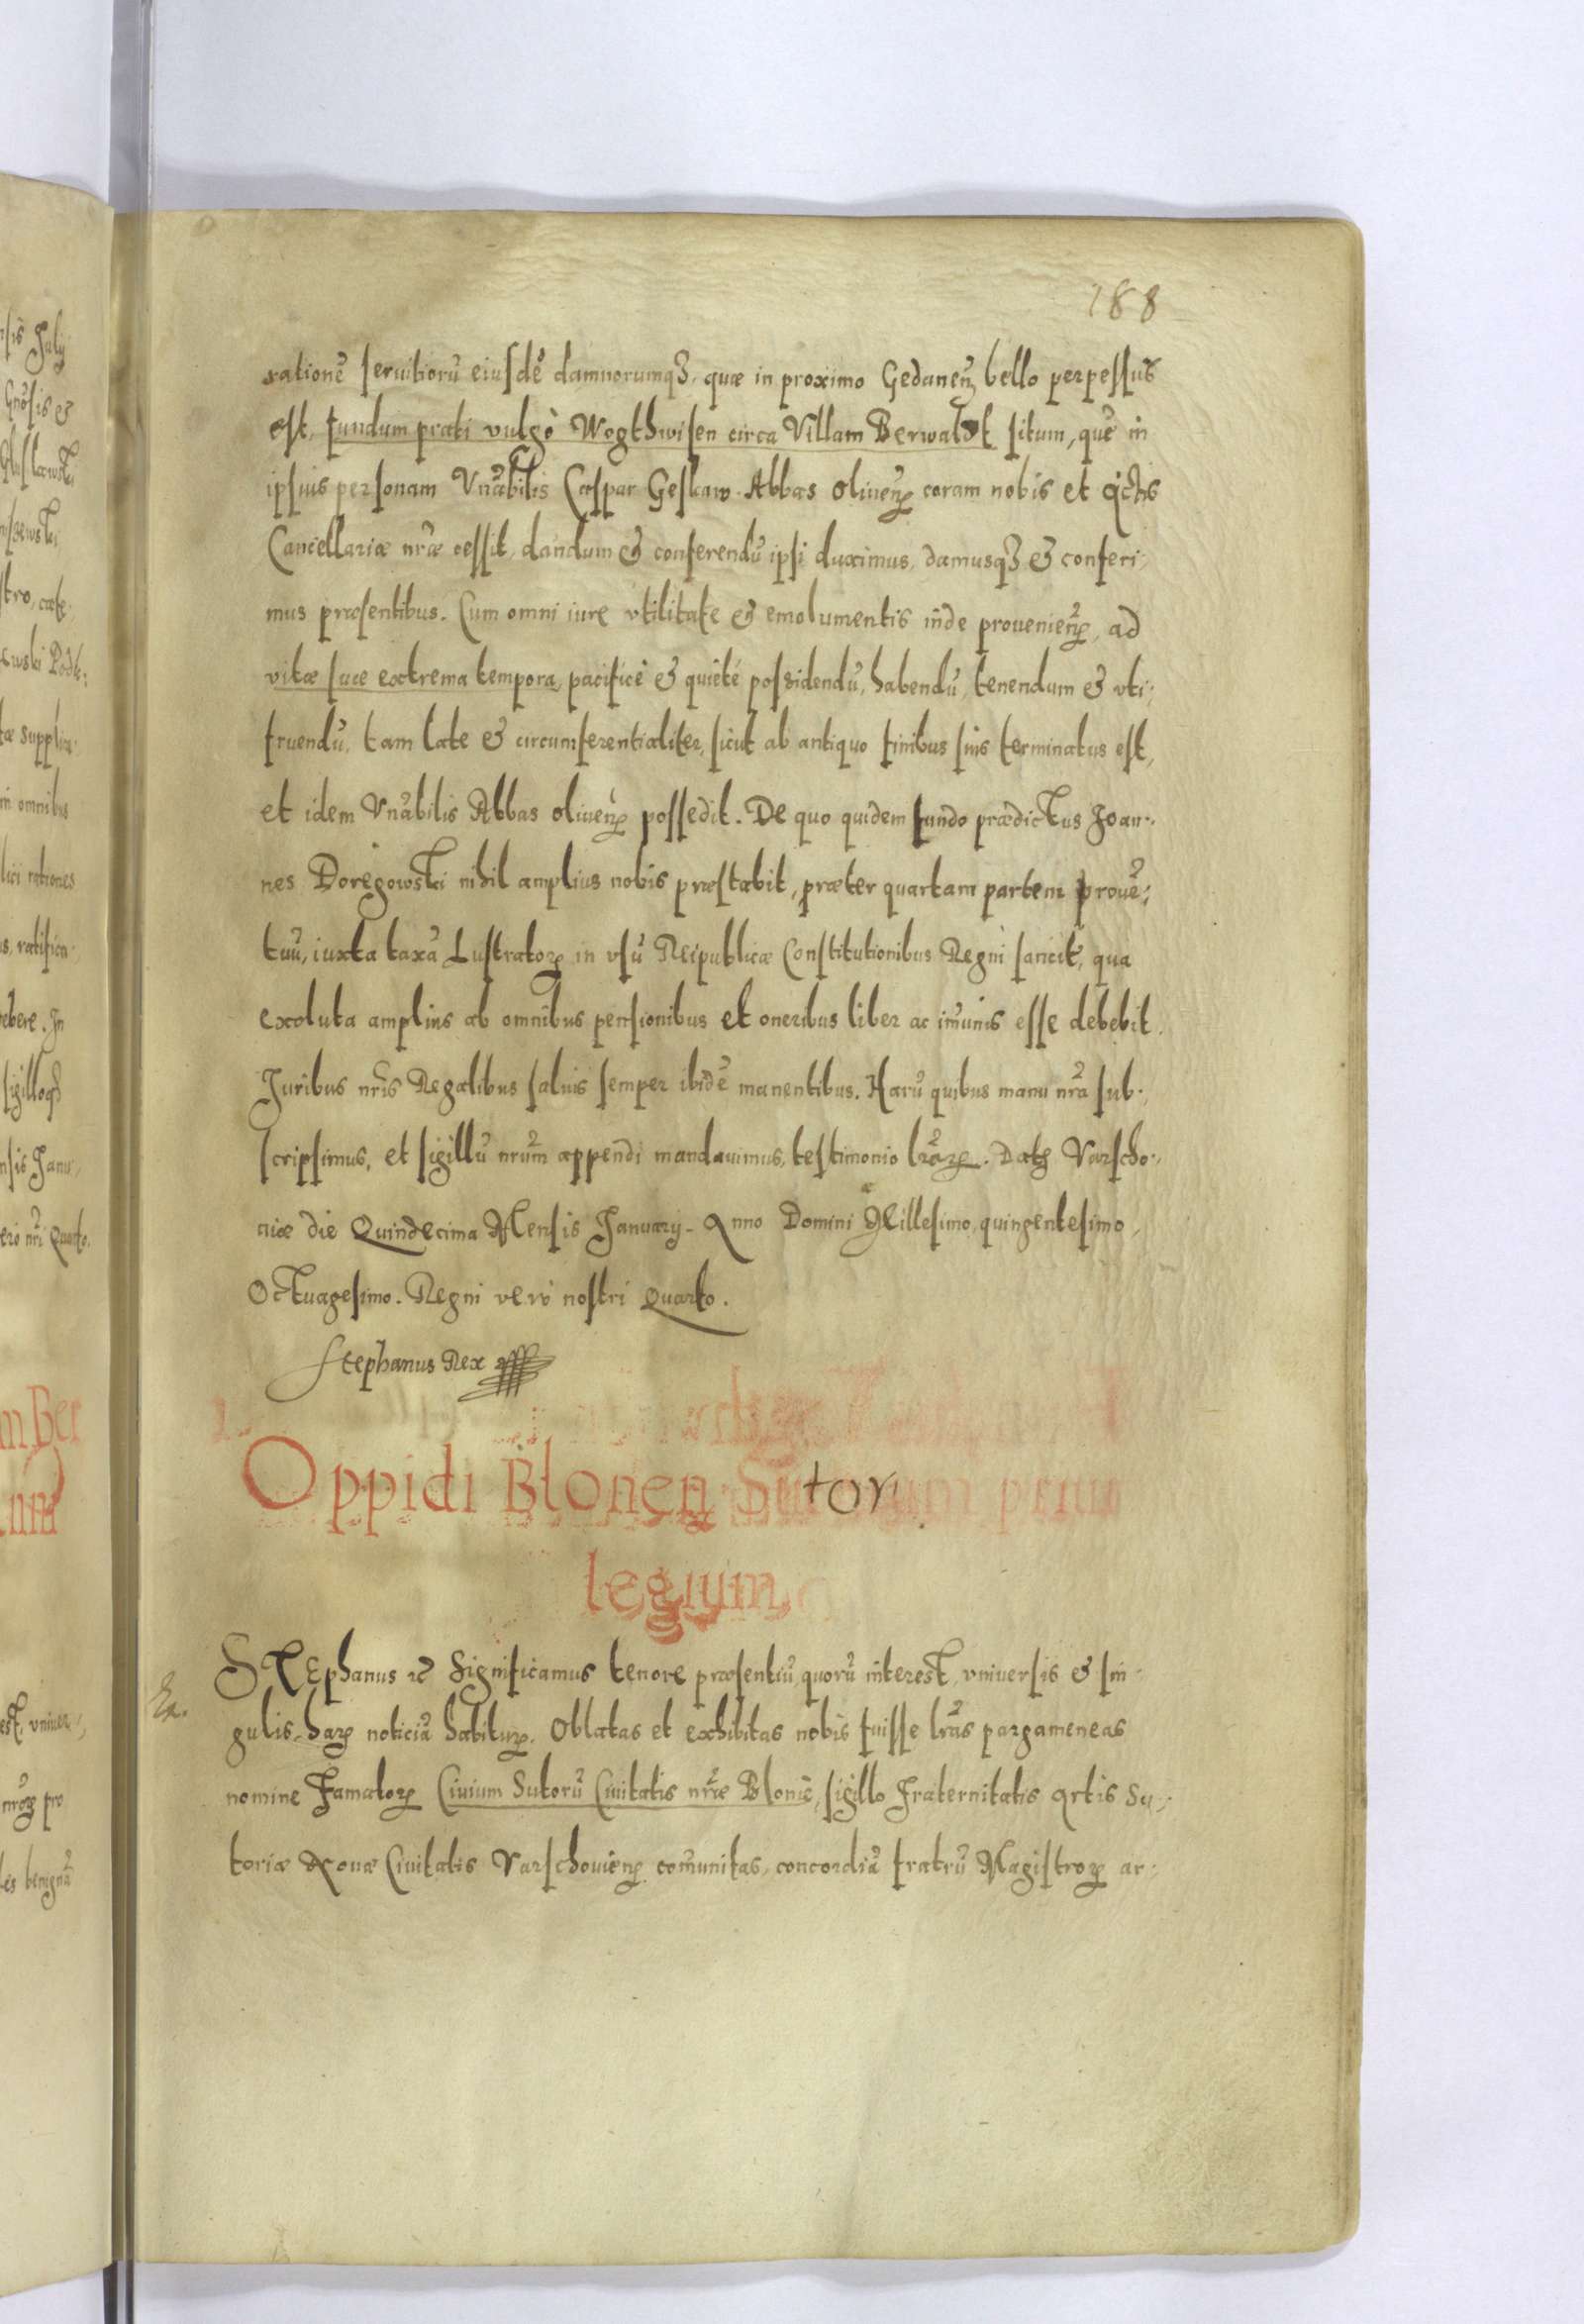 188
rationē seruitiorū eiusdē damnorumqȝ, quæ in proximo Gedanenꝫ bello perpessus
est, fundum prati vulgò Wogthwisen circa Villam Berwaldt situm, quē in
ipsius personam Vnābilis Caspar Geskaw Abbas oliueñ coram nobis et actis
Cancellariæ nræ cessit, dandum & conferendū ipsi duximus, damusqȝ & conferi,
mus præsentibus. Cum omni iure vtilitate & emolumentis inde prouenieñ, ad
vitæ suæ extrema tempora, pacificè & quietè possidendū, habendū, tenendum & vti,
fruendū, tam late & circumferentialiter, sicut ab antiquo finibus suis terminatus est,
et idem Vnābilis Abbas oliueñ possedit. De quo quidem fundo prædictus Joan,
nes Doregowski nihil amplius nobis præstabit, præter quartam partem prouē,
tuū, iuxta taxā Lustratorꝝ in vsū Reipublicæ Constitutionibus Regni sancit, qua
exoluta amplius ab omnibus pensionibus et oneribus liber ac im̄unis esse debebit.
Juribus nr̄is Regalibus saluis semper ibidē manentibus. Harū quibus manu nr̄a sub,
scripsimus, et sigillū nr̄um appendi mandauimus, testimonio lr̄arꝝ. Datꝫ Varscho,
uiæ die Quindecima Mensis Januarij Anno Domini Millesimo, quingentesimo,
Octuagesimo. Regni verò nostri Quarto.
Stephanus Rex
Oppidi Blonen Sutorum priui
legium
STEphanus ꝛc Significamus tenore præsentiū, quorū interest, vniuersis & sin
gulis, harꝝ noticiā habiturꝝ. Oblatas et exhibitas nobis fuisse lr̄as pargameneas
nomine Famatorꝝ Ciuium Sutorū Ciuitatis nr̄æ Blonie, sigillo Fraternitatis Artis Su,
toriæ Nouæ Ciuitatis Varschouieñ com̄unitas, concordiā fratrū Magistrorꝝ ar,